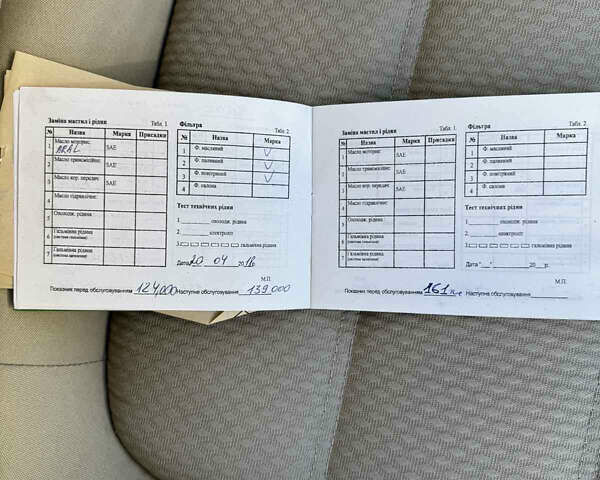 Заміна мастил і рідин Табл. 1.
№ Назва Марка Присадки
1 Масло моторне: ARAL SAE
2 Масло трансмісійне: SAE
3 Масло кор. передач: SAE
4 Масло гідравлічне:
5 Охолодж. рідина
6 Гальмівна рідина
7 Гальмівна рідина
Фільтра Табл. 2
№ Назва Марка
1 Ф. масляний ✓
2 Ф. паливний ✓
3 Ф. повітряний ✓
4 Ф. салона
Тест технічних рідин
1. охолодж. рідина
2. електроліт
3. гальмівна рідина
Дата 20 04 2018
М.П.
Показник перед обслуговуванням 124,000 Наступне обслуговування 139 000
Заміна мастил і рідин Табл. 1.
№ Назва Марка Присадки
1 Масло моторне: SAE
2 Масло трансмісійне: SAE
3 Масло кор. передач: SAE
4 Масло гідравлічне:
5 Охолодж. рідина
6 Гальмівна рідина
7 Гальмівна рідина
Фільтра Табл. 2
№ Назва Марка
1 Ф. масляний
2 Ф. паливний
3 Ф. повітряний
4 Ф. салона
Тест технічних рідин
1. охолодж. рідина
2. електроліт
3. гальмівна рідина
Дата "__" 20__р.
М.П.
Показник перед обслуговуванням 161 Наступне обслуговування